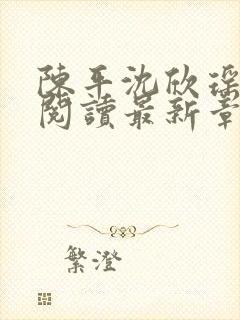 陳平沈欣瑤
閱讀最新章
繁澄